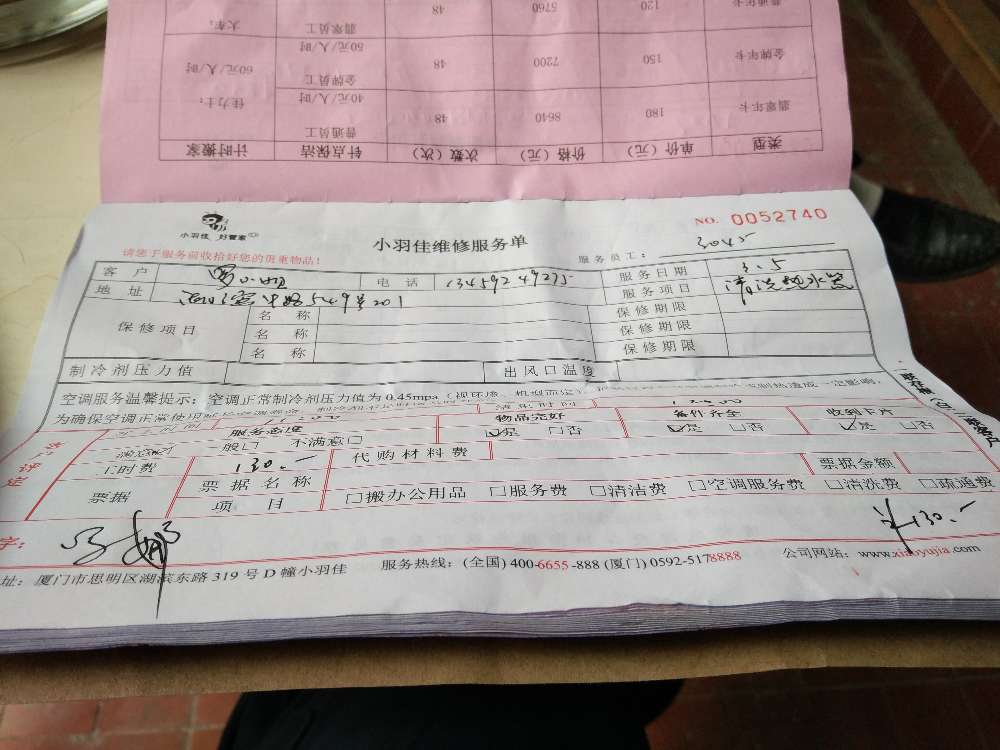 普通年卡 120 5760 48 翡翠员工 大车:
金牌年卡 150 7200 48 金牌员工 50元/人/时 60元/人/时
翡翠年卡 180 8640 48 普通员工 40元/人/时 佳力士:
类型 单价(元) 价格(元) 次数(次) 针点保洁 计时搬家
小羽佳 好管家
小羽佳维修服务单
NO. 0052740
请您于服务前收拾好您的贵重物品!
服务员工: 3045
客户 电话 13459249275 服务日期 3.5
地址 549号201 服务项目 清洗热水器
保修项目 名称 保修期限
名称 保修期限
名称 保修期限
制冷剂压力值 出风口温度
空调服务温馨提示: 空调正常制冷剂压力值为 0.45mpa
为确保空调正常使用
服务态度 物品完好 备件齐全 收到卡片
般□ 不满意□ ☑是 □否 ☑是 □否 ☑是 □否
工时费 130.- 代购材料费
票据 票据名称 票据金额
项目 □搬办公用品 □服务费 □清洁费 □空调服务费 □清洗费 □疏通费
130.-
字:
址: 厦门市思明区湖滨东路 319 号 D 幢小羽佳 服务热线: (全国) 400-6655-888 (厦门) 0592-5178888 公司网站: www.xiaoyujia.com